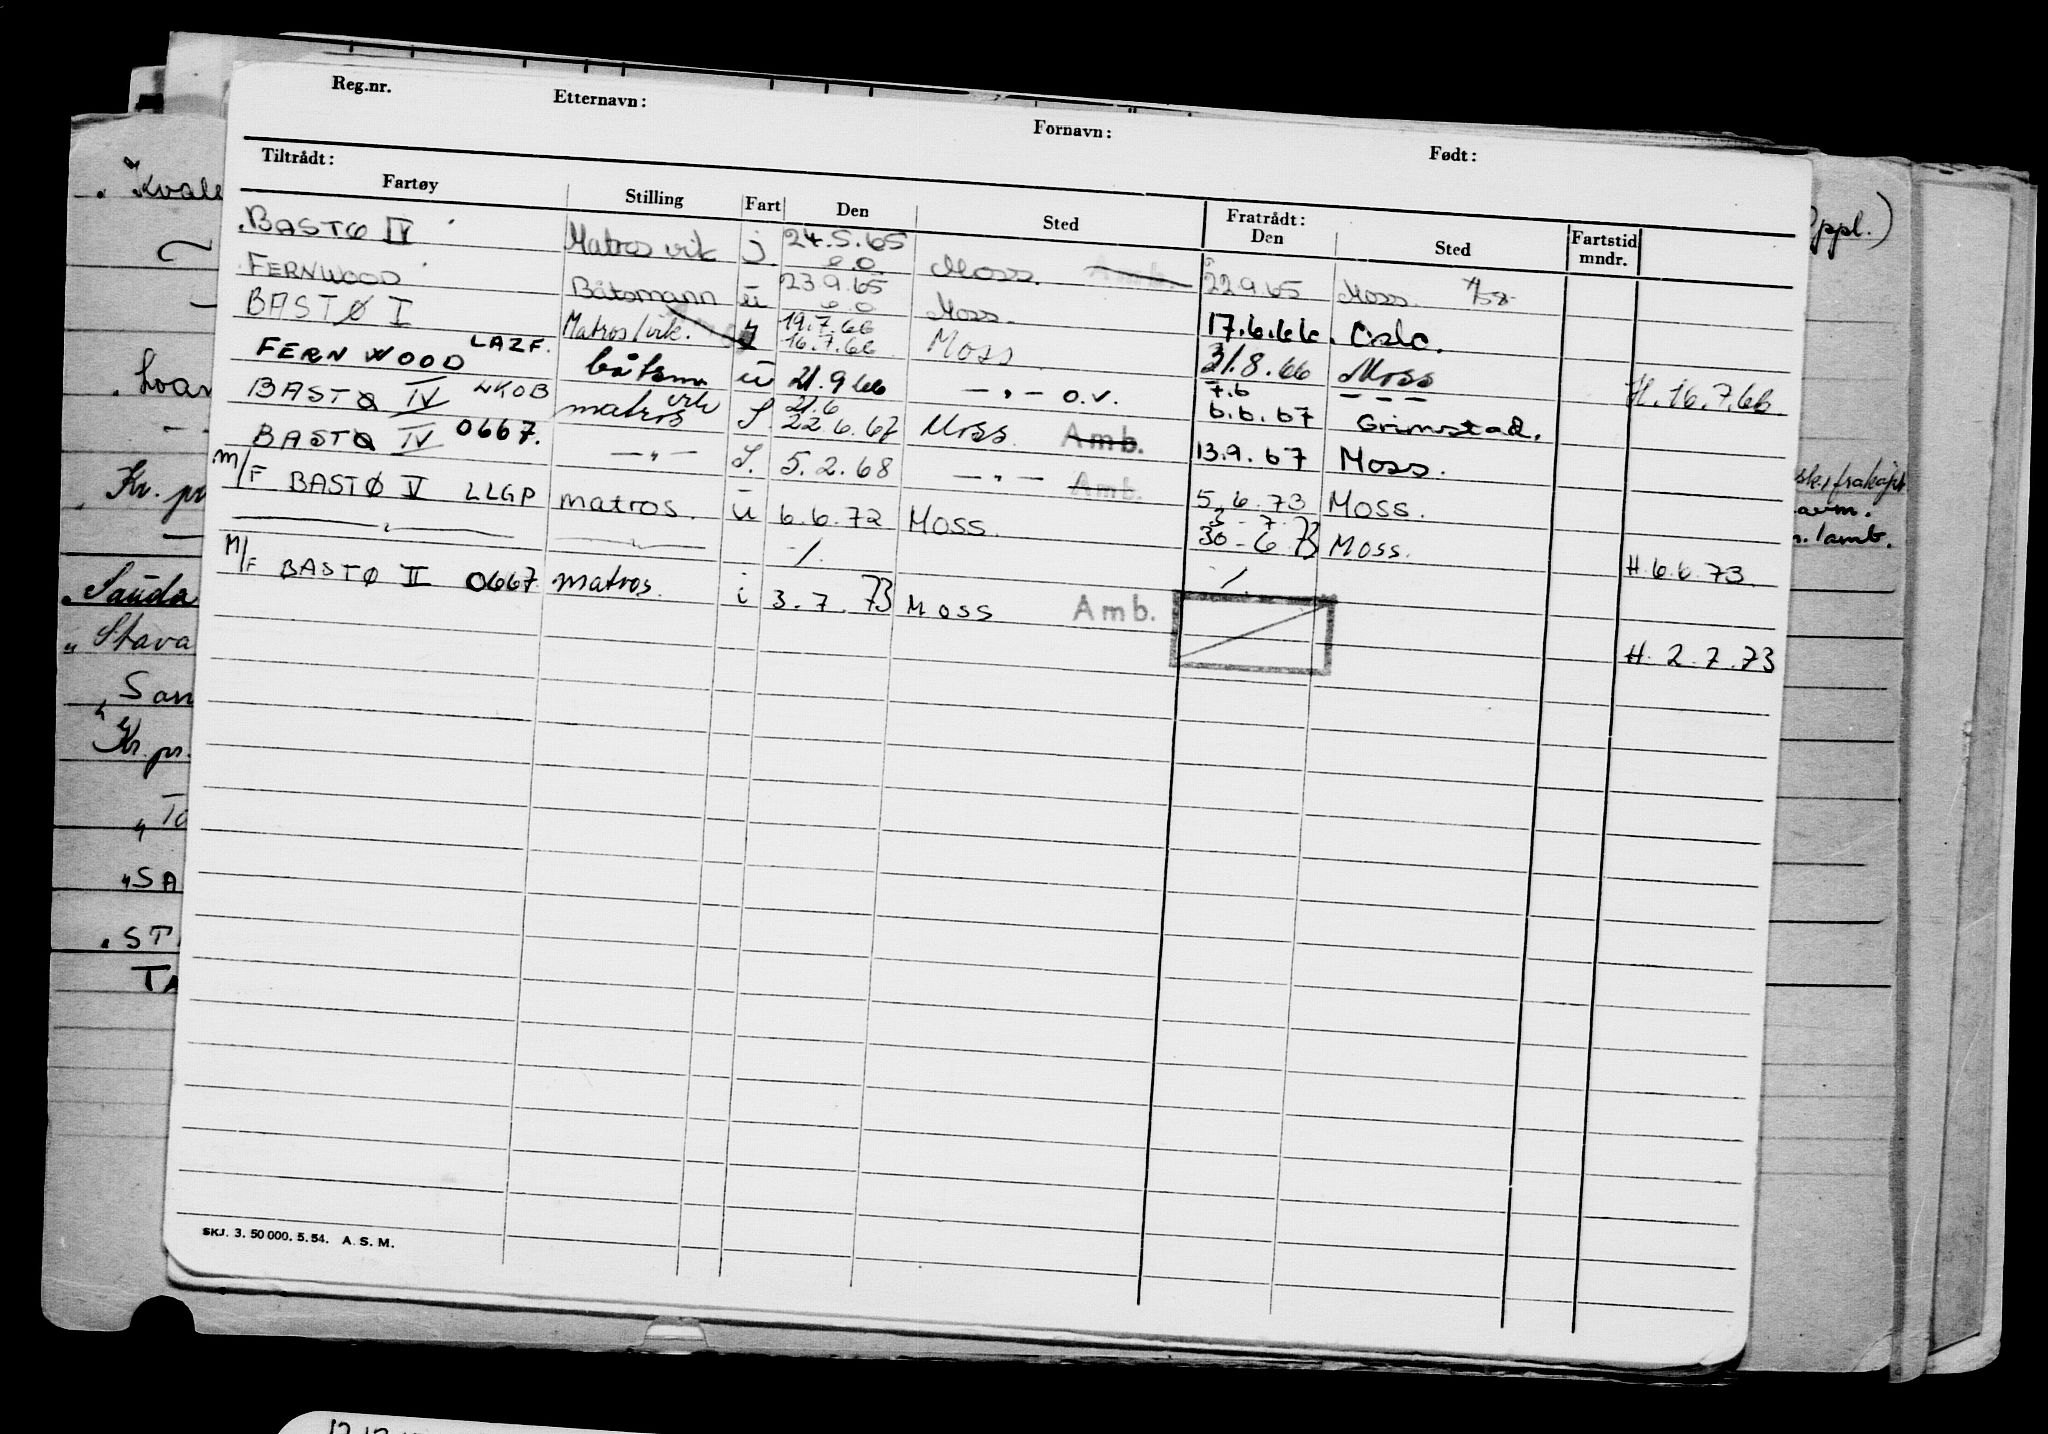 Reg.nr. Etternavn: Fornavn: Født:
Tiltrådt: Fratrådt:
Fartøy Stilling Fart Den Sted Den Sted Fartstid mndr.
BASTØ IV Matros vik j. 24.5.65 Moss. Amb. 22.9.65 Moss.
FERNWOOD Båtsmann ū 23.9.65 Moss. 17.6.66. Oslo.
BASTØ I Matros/vik. 19.7.66 16.7.66 Moss 31.8.66 Moss H. 16.7.66
FERN WOOD LAZF. båtsm ū 21.9.66 — " — o.v. 7.6 6.6.67 Grimstad.
BASTØ IV LKOB matros vik S. 21.6 22.6.67 Moss. Amb. 13.9.67 Moss.
BASTØ IV 0667. — " — S. 5.2.68 — " — Amb. 5.6.73 Moss.
M/F BASTØ V LLGP matros. ū 6.6.72 Moss. 3-7. 30-6.73 Moss. H. 6.6.73
— " — — " — ./. ./.
M/F BASTØ II 0667 matros. i 3.7.73 Moss Amb. H. 2.7.73
SKJ. 3. 50 000. 5. 54. A. S. M.
"Kvale
Kr. pr
Sauda
" Stava
San
Kr. pr.
" To
"SA
"ST
TA
Oppl.)
avm.
/amb.